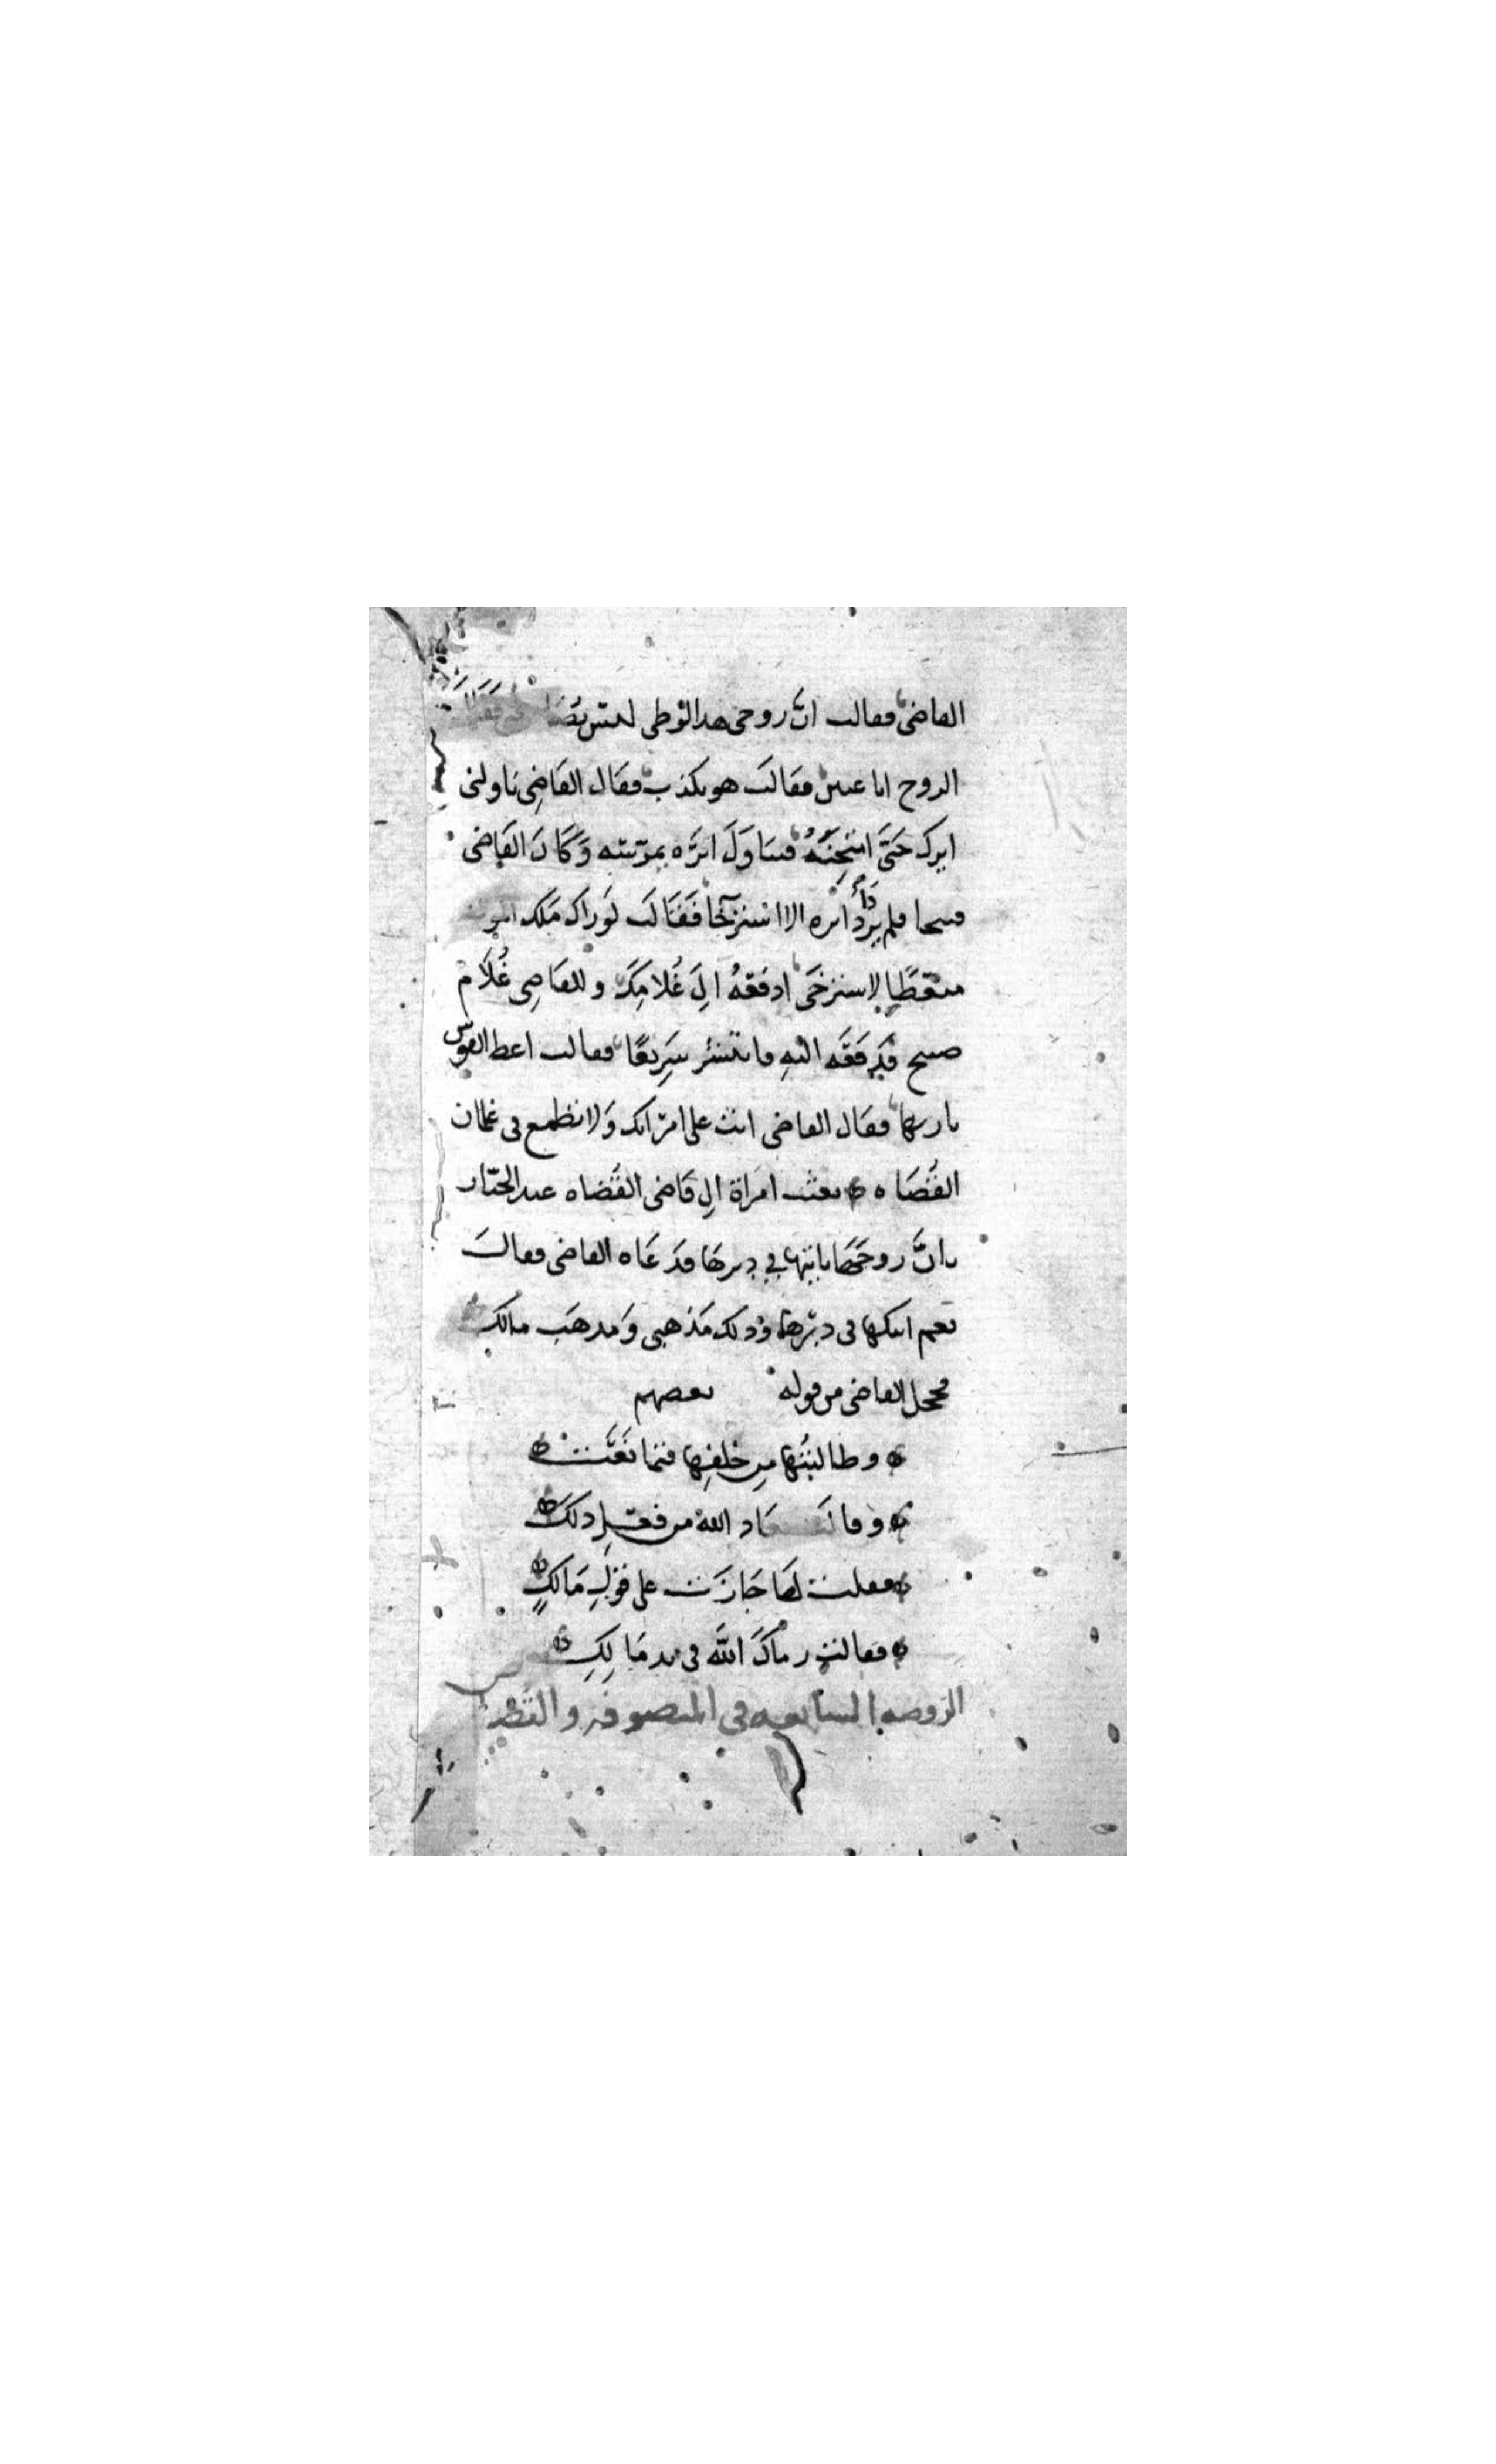 القاضي فقالت ان زوجي هذا الوطي ليس
الزوج انا عنين فقالت هو يكذب فقال القاضي ناولني
ايرك حَتَّى امتحِنَهُ فتناوَلَ ايرَه بمرّسه وَكَانَ القَاضي
قبيحا فلم يزدد ايره الا استرخَاً فَقَالَت لَو راك مَلَك الموت
منعظًا لاسترخَى ادفعهُ الَى غُلامِكَ وللقاضي غُلَام
صبيح فدَفَعَه اليهِ فانتشر سَرِيعًا فقالت اعط القوس
باريها فقال القاضي انت على امراتك وَلا تطمع في غلمان
القُضَاه بعثت امرَاة الى قاضى القُضاه عبد الجبّار
بانَّ زوجَهَا ياتيها في دبرهَا فدَعَاه القاضي فقالَ
نعم انيكها في دبرها وذلك مَذهبي وَمذهَب مالك
فخجل القاضي من قوله بعضهم
وطالبتُها مِن خلفِها فتمانَعَت
و قالَت مَعَاد الله من فعلِ ذلك
فقلت لهَا جَازَت على قَولِ مَالكٍ
فقالت رماكَ اللّه في يد مَالِكِ
الروضه السابعه في المتصوفه و